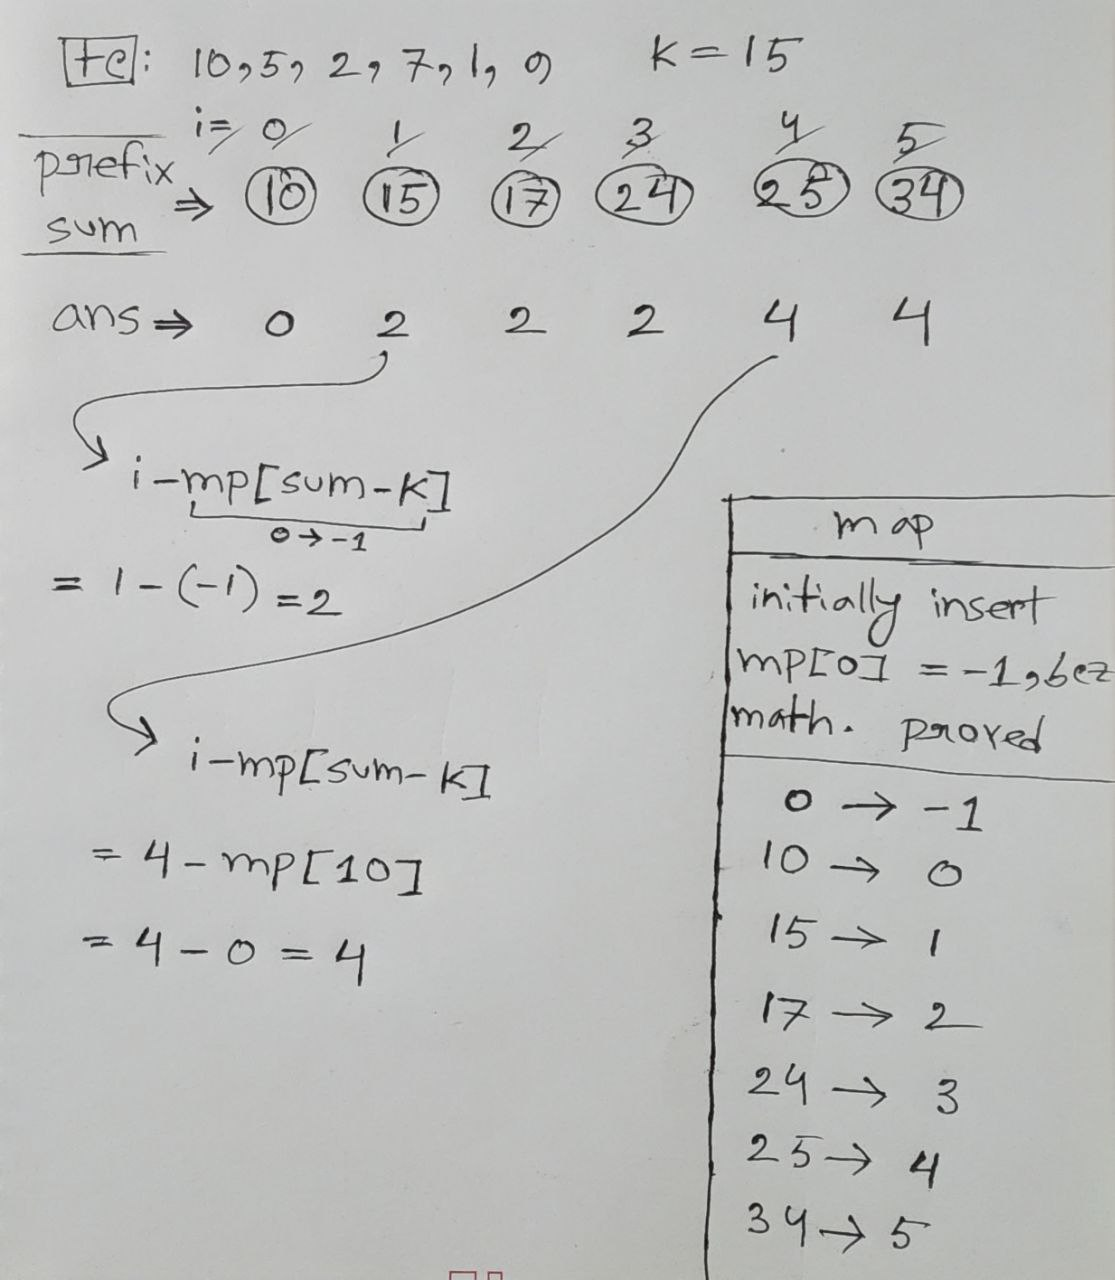 tc: 10, 5, 2, 7, 1, 9 K = 15
i = 0 1 2 3 4 5
prefix sum ⇒ 10 15 17 24 25 34
ans ⇒ 0 2 2 2 4 4
i - mp[sum-k]
0 → -1
= 1 - (-1) = 2
i - mp[sum-k]
= 4 - mp[10]
= 4 - 0 = 4
map
initially insert
mp[0] = -1, bcz
math. proved
0 → -1
10 → 0
15 → 1
17 → 2
24 → 3
25 → 4
34 → 5